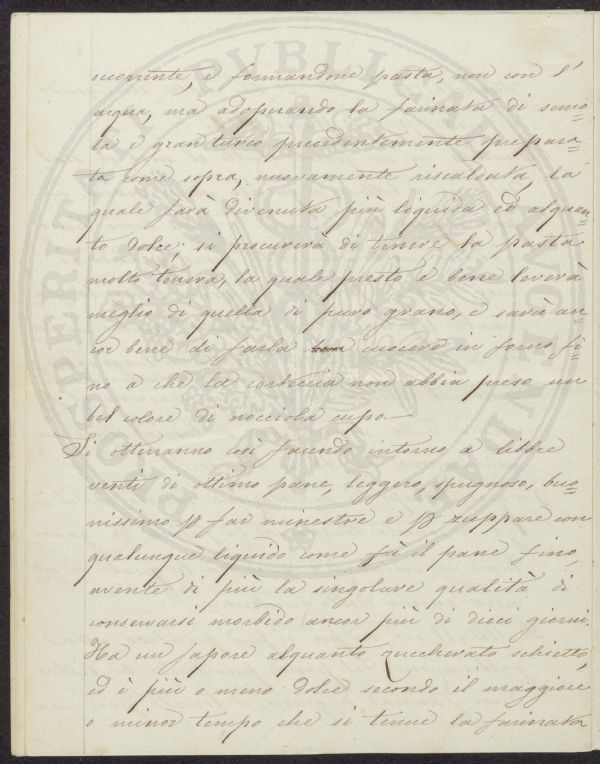 occorrente, e formandone pasta, non con l'
acqua, ma adoperando la farinata di semo=
la e gran turco precedentemente prepara=
ta come sopra, nuovamente riscaldata, la
quale sarà divenuta più liquida ed alquan=
to dolce; si procurerà di tenere la pasta
molto tenera, la quale presto e bene leverà
meglio di quella di puro grano, e sarà an=
cor bene di farla cuocere in forno fi=
no a che la corteccia non abbia preso un
bel colore di nocciola cupo.—
Si otteranno così facendo intorno a libbre
venti di ottimo pane, leggero, spugnoso, buo=
nissimo p far minestre e p zuppare con
qualunque liquido come fa il pane fino,
avente di più la singolare qualità di
conservarsi morbido ancor più di dieci giorni.
Ha un sapore alquanto zuccherato schietto,
ed è più o meno dolce secondo il maggiore
o minor tempo che si tenne la farinata
PROSPERITATI PVBLICAE